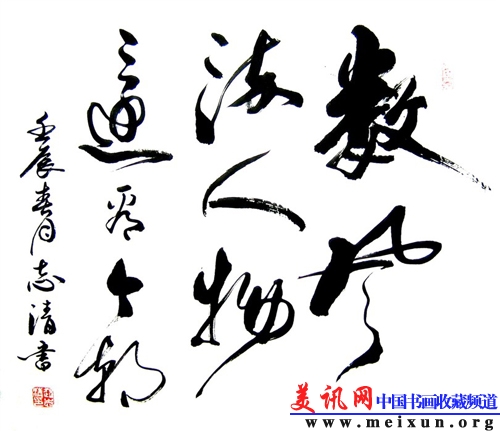 数風
流人物
還看今朝
壬辰春月志清書
美讯网 中国书画收藏频道
www.meixun.org